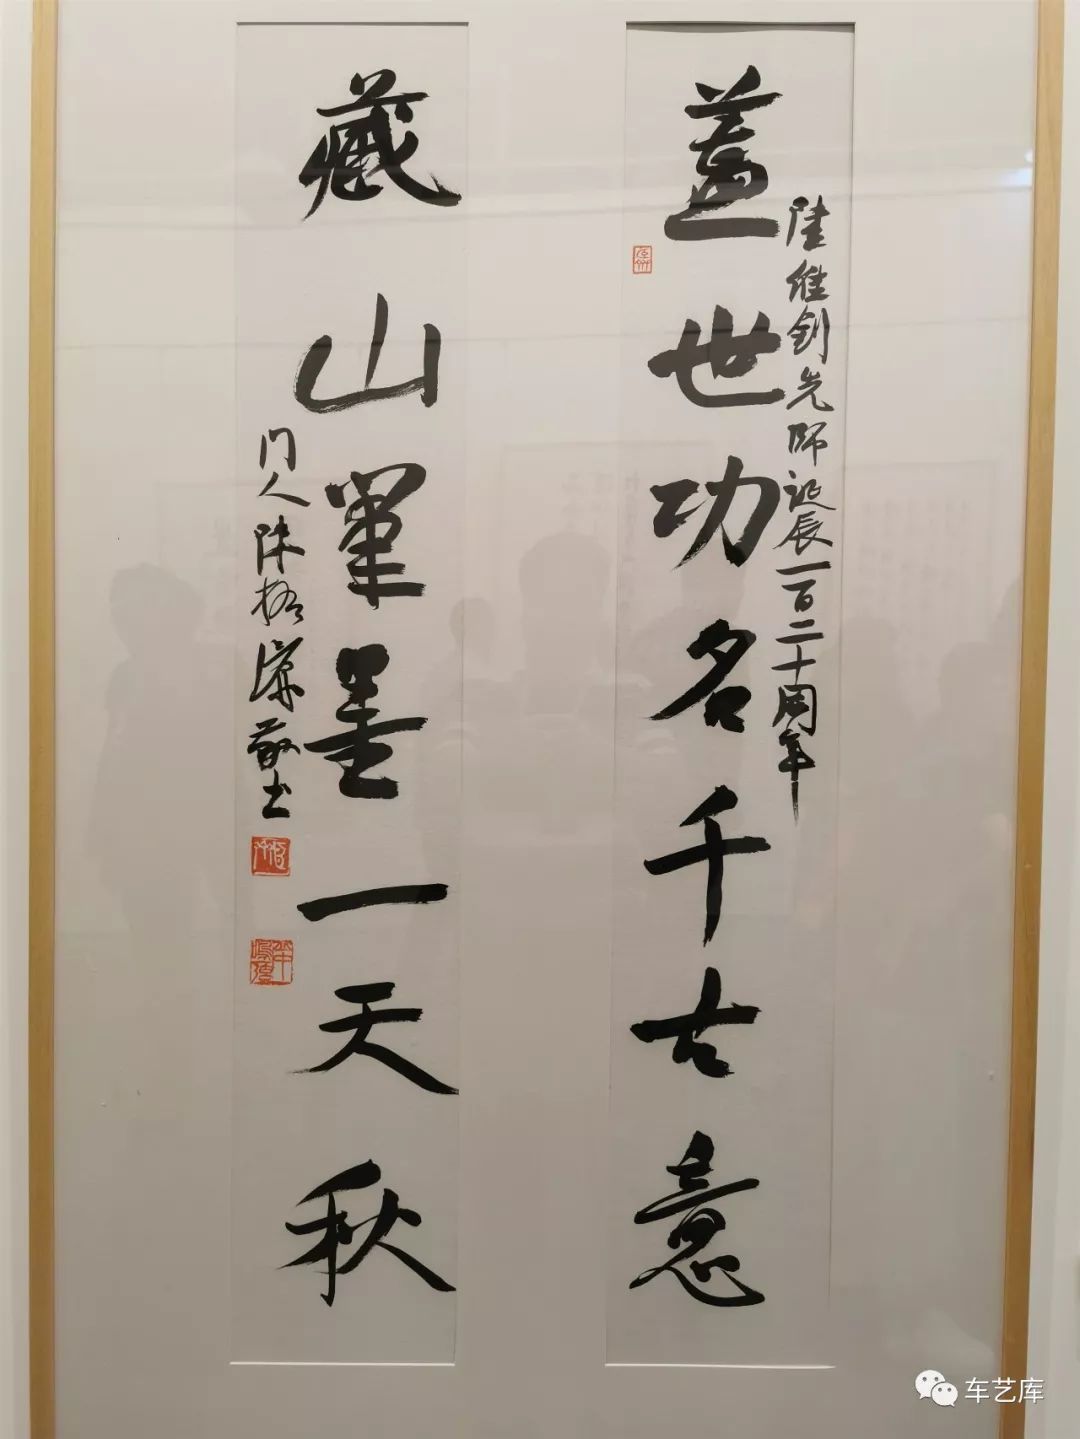 陸維釗先師誕辰一百二十周年
蓋世功名千古意
藏山筆墨一天秋
門人陈振濂敬书
车艺库